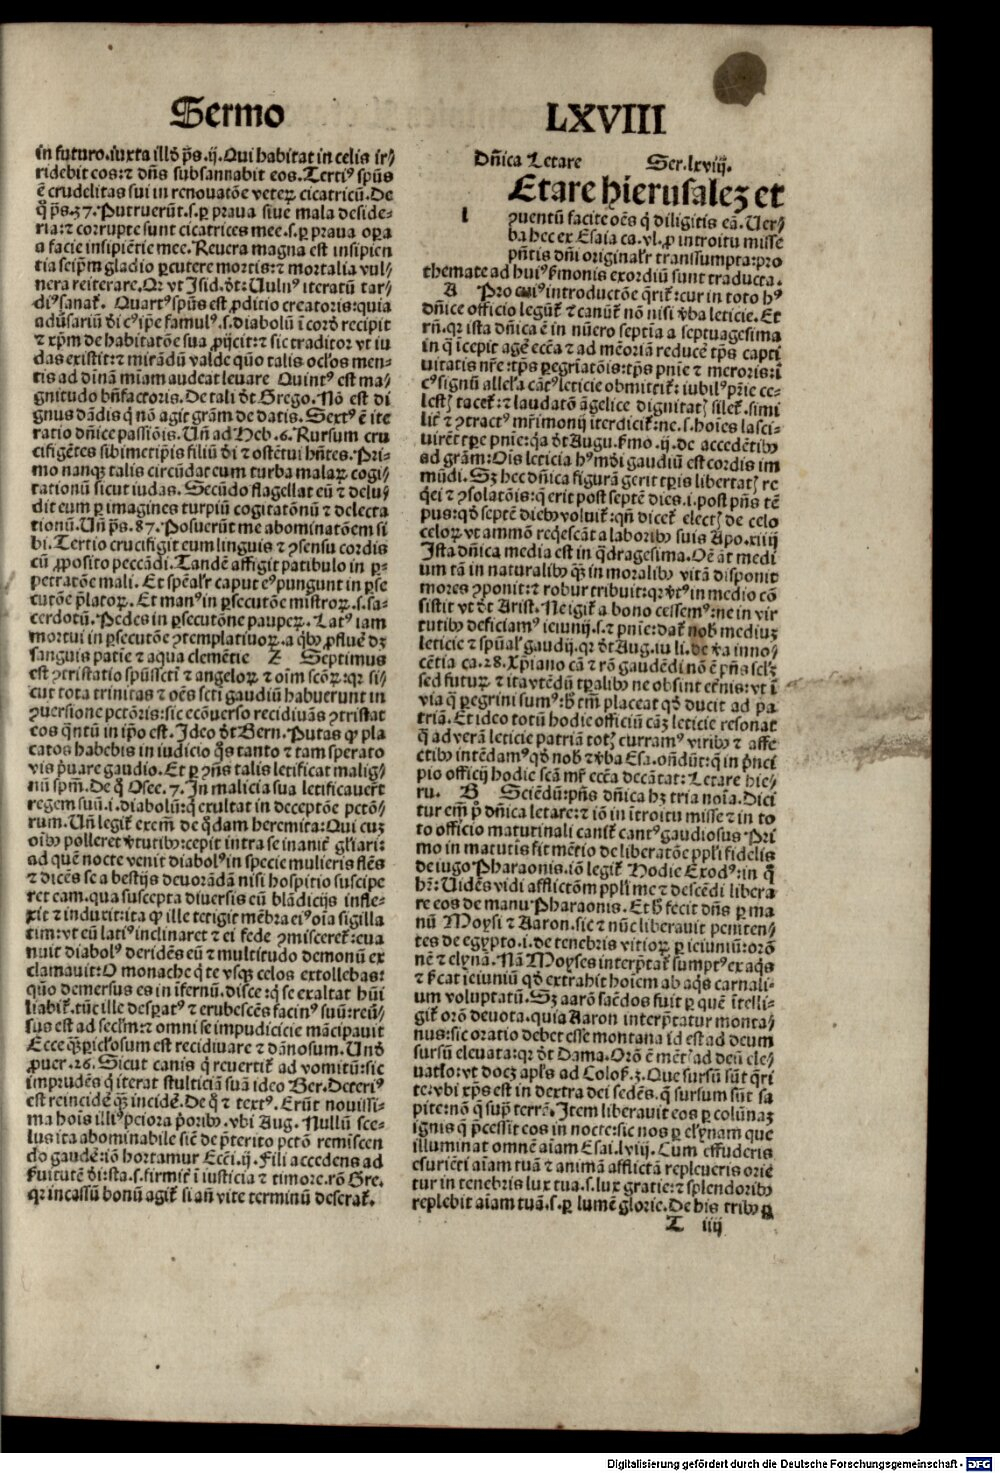 Sermo
LXVIII
in futuro.iuxta illđ p̄s.ij.Qui habitat in celis ir/
ridebit eos:⁊ dn̄s subsannabit eos.Terti⁹ spūs
ē crudelitas sui in renouatōe veteꝝ cicatricū.De
q̄ p̄s.37.Putruerūt.s.ꝑ praua siue mala deside-
ria:⁊ corrupte sunt cicatrices mee.s.ꝑ praua oꝑa
a facie insipiētie mee.Reuera magna est insipien
tia seip̄m gladio ꝑcutere mortis:⁊ mortalia vul/
nera reiterare.Qr vt Isid.đt:Uuln⁹ iteratū tar/
di⁹ sanat̄.Quart⁹ spūs est ꝓditio creatoris:quia
aduersariū đi c⁹ ip̄e famul⁹.s.diabolū ī corđ recipit
⁊ xp̄m de habitatōe sua ꝓijcit:⁊ sic traditor vt iu
das existit:⁊ mirādū valde quō talis oc̄los men-
tis ad diuinā mīam audeat leuare Quint⁹ est ma/
gnitudo bn̄factoris.De tali đt Grego.Nō est di
gnus dādis q̄ nō agit grām de datis.Sext⁹ ē ite
ratio dn̄ice passiōis.Un̄ ad Heb.6.Rursum cru
cifigētes sibimetip̄is filiū đi ⁊ ostētui hn̄tes.Pri-
mo nanqꝫ talis circūdat eum turba malaꝝ cogi/
tationū sicut iudas.Secūdo flagellat eū ⁊ delu/
dit eum ꝑ imagines turpiū cogitatōnū ⁊ delecta
tionū.Un̄ p̄s.87.Posuerūt me abominatōem si
bi.Tertio crucifigit eum linguis ⁊ ꝯsensu cordis
cū ꝓposito peccādi.Tandē affigit patibulo in ꝑ-
petratōe mali.Et spēalr̄ caput e⁹ pungunt in ꝑse
cutōe p̄latoꝝ.Et man⁹ in ꝑsecutōe mistroꝝ.s.sa-
cerdotū.Pedes in ꝑsecutōne paupeꝝ.Lat⁹ iam
mortui in ꝑsecutōe ꝯtemplatiuoꝝ.a q̄bꝰ ꝓfluē dꝫ
sanguis patiētie ⁊ aqua clemētie Z Septimus
est ꝯtristatio spūssc̄ti ⁊ angeloꝝ ⁊ oīm sc̄oꝝ:qr si-
cut tota trinitas ⁊ oēs sc̄ti gaudiū habuerunt in
ꝯuersione pctōris:sic ecōuerso recidiuās ꝯtristat
eos q̄ntū in ip̄o est.Ideo đt Bern.Putas ꝙ pla
catos habebis in iudicio q̄s tanto ⁊ tam sperato
vis p̄uare gaudio.Et ꝑ ꝯn̄s talis letificat malig-
nū spm̄.De q̄ Osee.7.In malicia sua letificauer̄t
regem suū.i.diabolū:q̄ exultat in deceptōe pctō/
rum.Un̄ legit̄ exem̄ de q̄dam heremita:Qui cuꝫ
oībꝰ polleret v̄tutibꝰ:cepit intra se inanit̄ gl̄iari:
ad quē nocte venit diabol⁹ in specie mulieris flēs
⁊ dicēs se a bestijs deuorādā nisi hospitio suscipe
ret eam.qua suscepta diuersis eū blādicijs infle-
xit ⁊ induxit:ita ꝙ ille tetigit mēbra ei⁹ oīa sigilla
tim:vt eū lati⁹ inclinaret ⁊ ei fede ꝯmisceret̄:eua
nuit diabol⁹ deridēs eū ⁊ multitudo demonū ex
clamauit:O monache q̄ te vsqꝫ celos extollebas:
quō demersus es in īfernū.disce:q̄ se exaltat hūi
liabit̄.tūc ille desꝑat⁹ ⁊ erubescēs facin⁹ suū:reū/
sus est ad sec̄lm:⁊ omni se impudicicie mācipauit
Ecce q̄ꝫ ꝑic̄losum est recidiuare ⁊ dānosum.Unđ
ꝓuer.26.Sicut canis q̄ reuertit̄ ad vomitū:sic
imprudēs q̄ iterat stulticiā suā ideo Ber.Deteri⁹
est reincidē q̄ꝫ incidē.De q̄ ⁊ text⁹.Erūt nouissi-
ma hoīs illi⁹ peiora p̄oribꝰ.vbi Aug.Nullū sce-
lus ita abominabile sicē de p̄terito pctō remiscen
do gaudē:iō hortamur Ecc̄i.ij.Fili accedens ad
ẜuitutē đi:sta.s.firmit̄ ī iusticia ⁊ timore.rō Gre.
qr incassū bonū agit̄ si añ vite terminū deserat̄.
Dn̄ica Letare Ser.lxviij.
l
Etare hierusaleꝫ et
ꝯuentū facite oēs q̄ diligitis eā.Uer/
ba hec ex Esaia ca.vl.ꝓ introitu misse
pn̄tis dn̄i originalr̄ transsumpta:pro
themate ad hui⁹ ẜmonis exordiū sunt traducta.
A Pro cui⁹ introductōe q̄rit̄:cur in toto h⁹
dn̄ice officio legūt̄ ⁊ canūt̄ nō nisi v̄ba leticie.Et
rn̄.qr ista dn̄ica ē in nūero septīa a septuagesima
in q̄ īcepit agē ecc̄a ⁊ ad mēoriā reducē tp̄s capti
uitatis nr̄e:tp̄s ꝑegr̄iatōis:tp̄s pnīe ⁊ meroris:ī
c⁹ signū allel̄a cāt⁹ leticie obmittit̄:iubil⁹ pr̄ie ce-
lest̄ tacet̄:⁊ laudatō āgelice dignitat̄ silet̄.simi
lit̄ ⁊ ꝯtract⁹ mr̄imonij iterdicit̄:ne.s.hoīes lasci-
uirēt tꝑe pnīe:q̄a đt Augu.ẜmo.ij.de accedētibꝰ
ad grām:Ois leticia h⁹ mđi gaudiū est cordis im
mūdi.Sꝫ hec dn̄ica figurā gerit tꝑis libertat̄ re
q̄ei ⁊ ꝯsolatōis:q̄ erit post septē dies.i.post pn̄s tē
pus:qđ septē diebꝰ voluit̄:qn̄ dicet̄ elect̄ de celo
celoꝝ vt ammō reqescāt a laboribꝰ suis Apo.xiiij
Ista dn̄ica media est in q̄dragesima.Oē āt medi
um tā in naturalibꝰ qꝫ in moralibꝰ vitā disponit
mores ꝯponit:⁊ robur tribuit:qr v̄t⁹ in medio cō
sistit vt đt Arist.Ne igit̄ a bono cessem⁹:ne in vir
tutibꝰ deficiam⁹ ieiunij.s.⁊ pnīe:dat̄ nob̄ mediuꝫ
leticie ⁊ spūal̄ gaudij.qr đt Aug.iu li.de v̄a inno/
cētia ca.28.Xp̄iano cā ⁊ rō gaudēdi nō ē pn̄s sel̄ꝫ
sed futuꝝ ⁊ ita vtēdū tꝑalibꝰ ne obsint et̄nis:vt ī
via q̄ ꝑegrini sum⁹:h̄ tm̄ placeat qđ ducit ad pa
triā.Et ideo totū hodie officiū cāꝫ leticie resonat
q̄ ad verā leticie patriā tot̄ curram⁹ viribꝰ ⁊ affe
ctibꝰ intēdam⁹ qđ nob̄ ⁊ v̄ba Esa.ondūt:q̄ in p̄nci
pio officij hodie scā mr̄ ecc̄a decātat:Letare hie/
ru. B Sciēdū:pn̄s dn̄ica hꝫ tria noīa.Dici
tur em̄ p̄ dn̄ica letare:⁊ iō in itroitu misse ⁊ in to
to officio matutinali canit̄ cant⁹ gaudiosus Pri
mo in matutīs fit mētio de liberatōe ppl̄i fidelis
de iugo Pharaonis.iō legit̄ Hodie Exod⁹:in q̄
hr̄:Uidēs vidi afflictōm ppl̄i mei ⁊ descēdi libera
re eos de manu Pharaonis.Et h̄ fecit dn̄s ꝑ ma
nū Moysi ⁊ Aaron.sic ⁊ nūc liberauit peniten/
tes de egypto.i.de tenebris vitioꝝ ꝑ ieiuniū:orō
nē ⁊ elynā.Nā Moyses interp̄tat̄ sumpt⁹ ex aq̄s
⁊ ẜcat ieiuniū qđ extrahit hoīem ab aqs carnali-
um voluptatū.Sꝫ aarō sac̄dos fuit ꝑ quē itelli-
git̄ orō deuota.quia Aaron interp̄tatur monta/
nus:sic oratio debet esse montana id est ad deum
sursū eleuata:qr đt Dama.Orō ē mēt̄ ad deū ele/
uatio:vt docꝫ apl̄s ad Colos̄.3.Que sursū sūt q̄ri
te:vbi xp̄s est in dextra dei sedēs.q̄ sursum sūt sa
pite:nō q̄ suꝑ terrā.Item liberauit eos ꝑ colūnaꝫ
ignis q̄ p̄cessit eos in nocte:sic nos ꝑ elynam que
illuminat omnē aīam Esai.lviij.Cum effuderis
esuriēti aīam tuā ⁊ animā afflictā repleueris orie
tur in tenebris lux tua.s.lux gratie:⁊ splendoribꝰ
replebit aīam tuā.s.ꝑ lumē glorie.De his tribꝰ ꝗ
T iiij
Digitalisierung gefördert durch die Deutsche Forschungsgemeinschaft - DFG